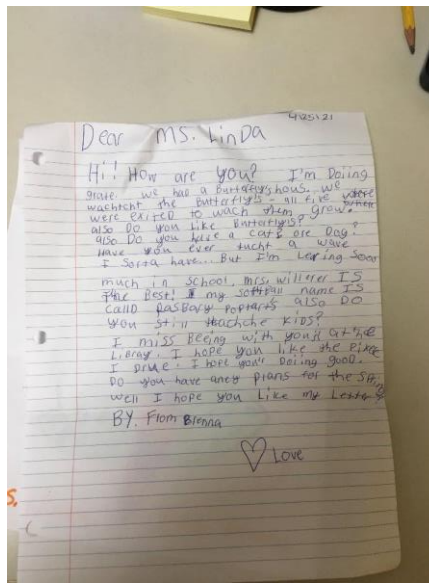 4/25/21
Dear Ms. LinDa
Hi! How are you? I'm Doiing
grate. we had a butterflys hous. we
wachtcht the Butterflys - all five
were exited to wach them grow.
also Do you like Butterflyis?
also Do you have a cat ore Dag?
Have you ever tucht a wave
I sorta have... But I'm Lering Sooo
much in school. mrs. willerer IS
The Best! my softball name IS
calld Rasbary Poptarts also DO
you still thachche KIDS?
I miss Beeing with you at the
Libray. I hope you like the Pixture
I Drue. I hope you'r Doiing good.
Do you have aney plans for the
well I hope you Like my Letter
BY. From Brenna
Love